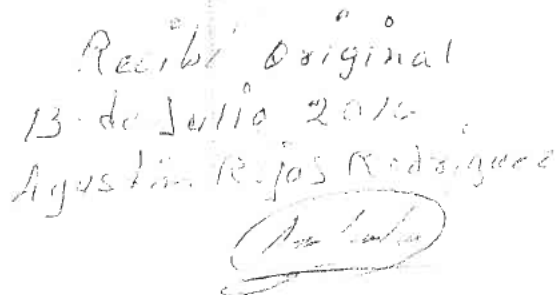 Recibí Original
13 de Julio 2016
Agustín Rojas Rodríguez